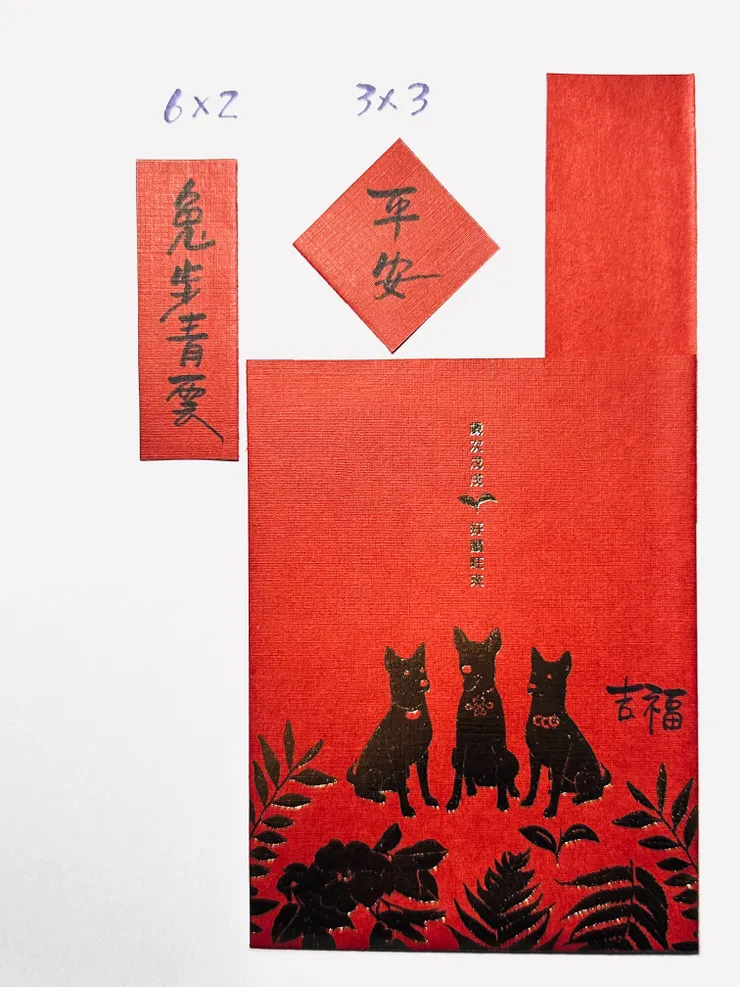 6×2
3×3
兔步青雲
平
安
歲次戊戌
好旺來
吉福